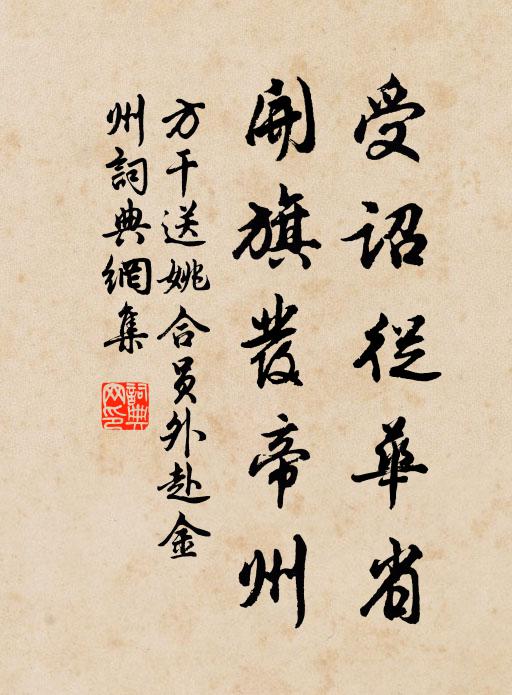 受詔從華省
開旗發帝州
方干送姚合員外赴金
州詞典網集
詞典
网印